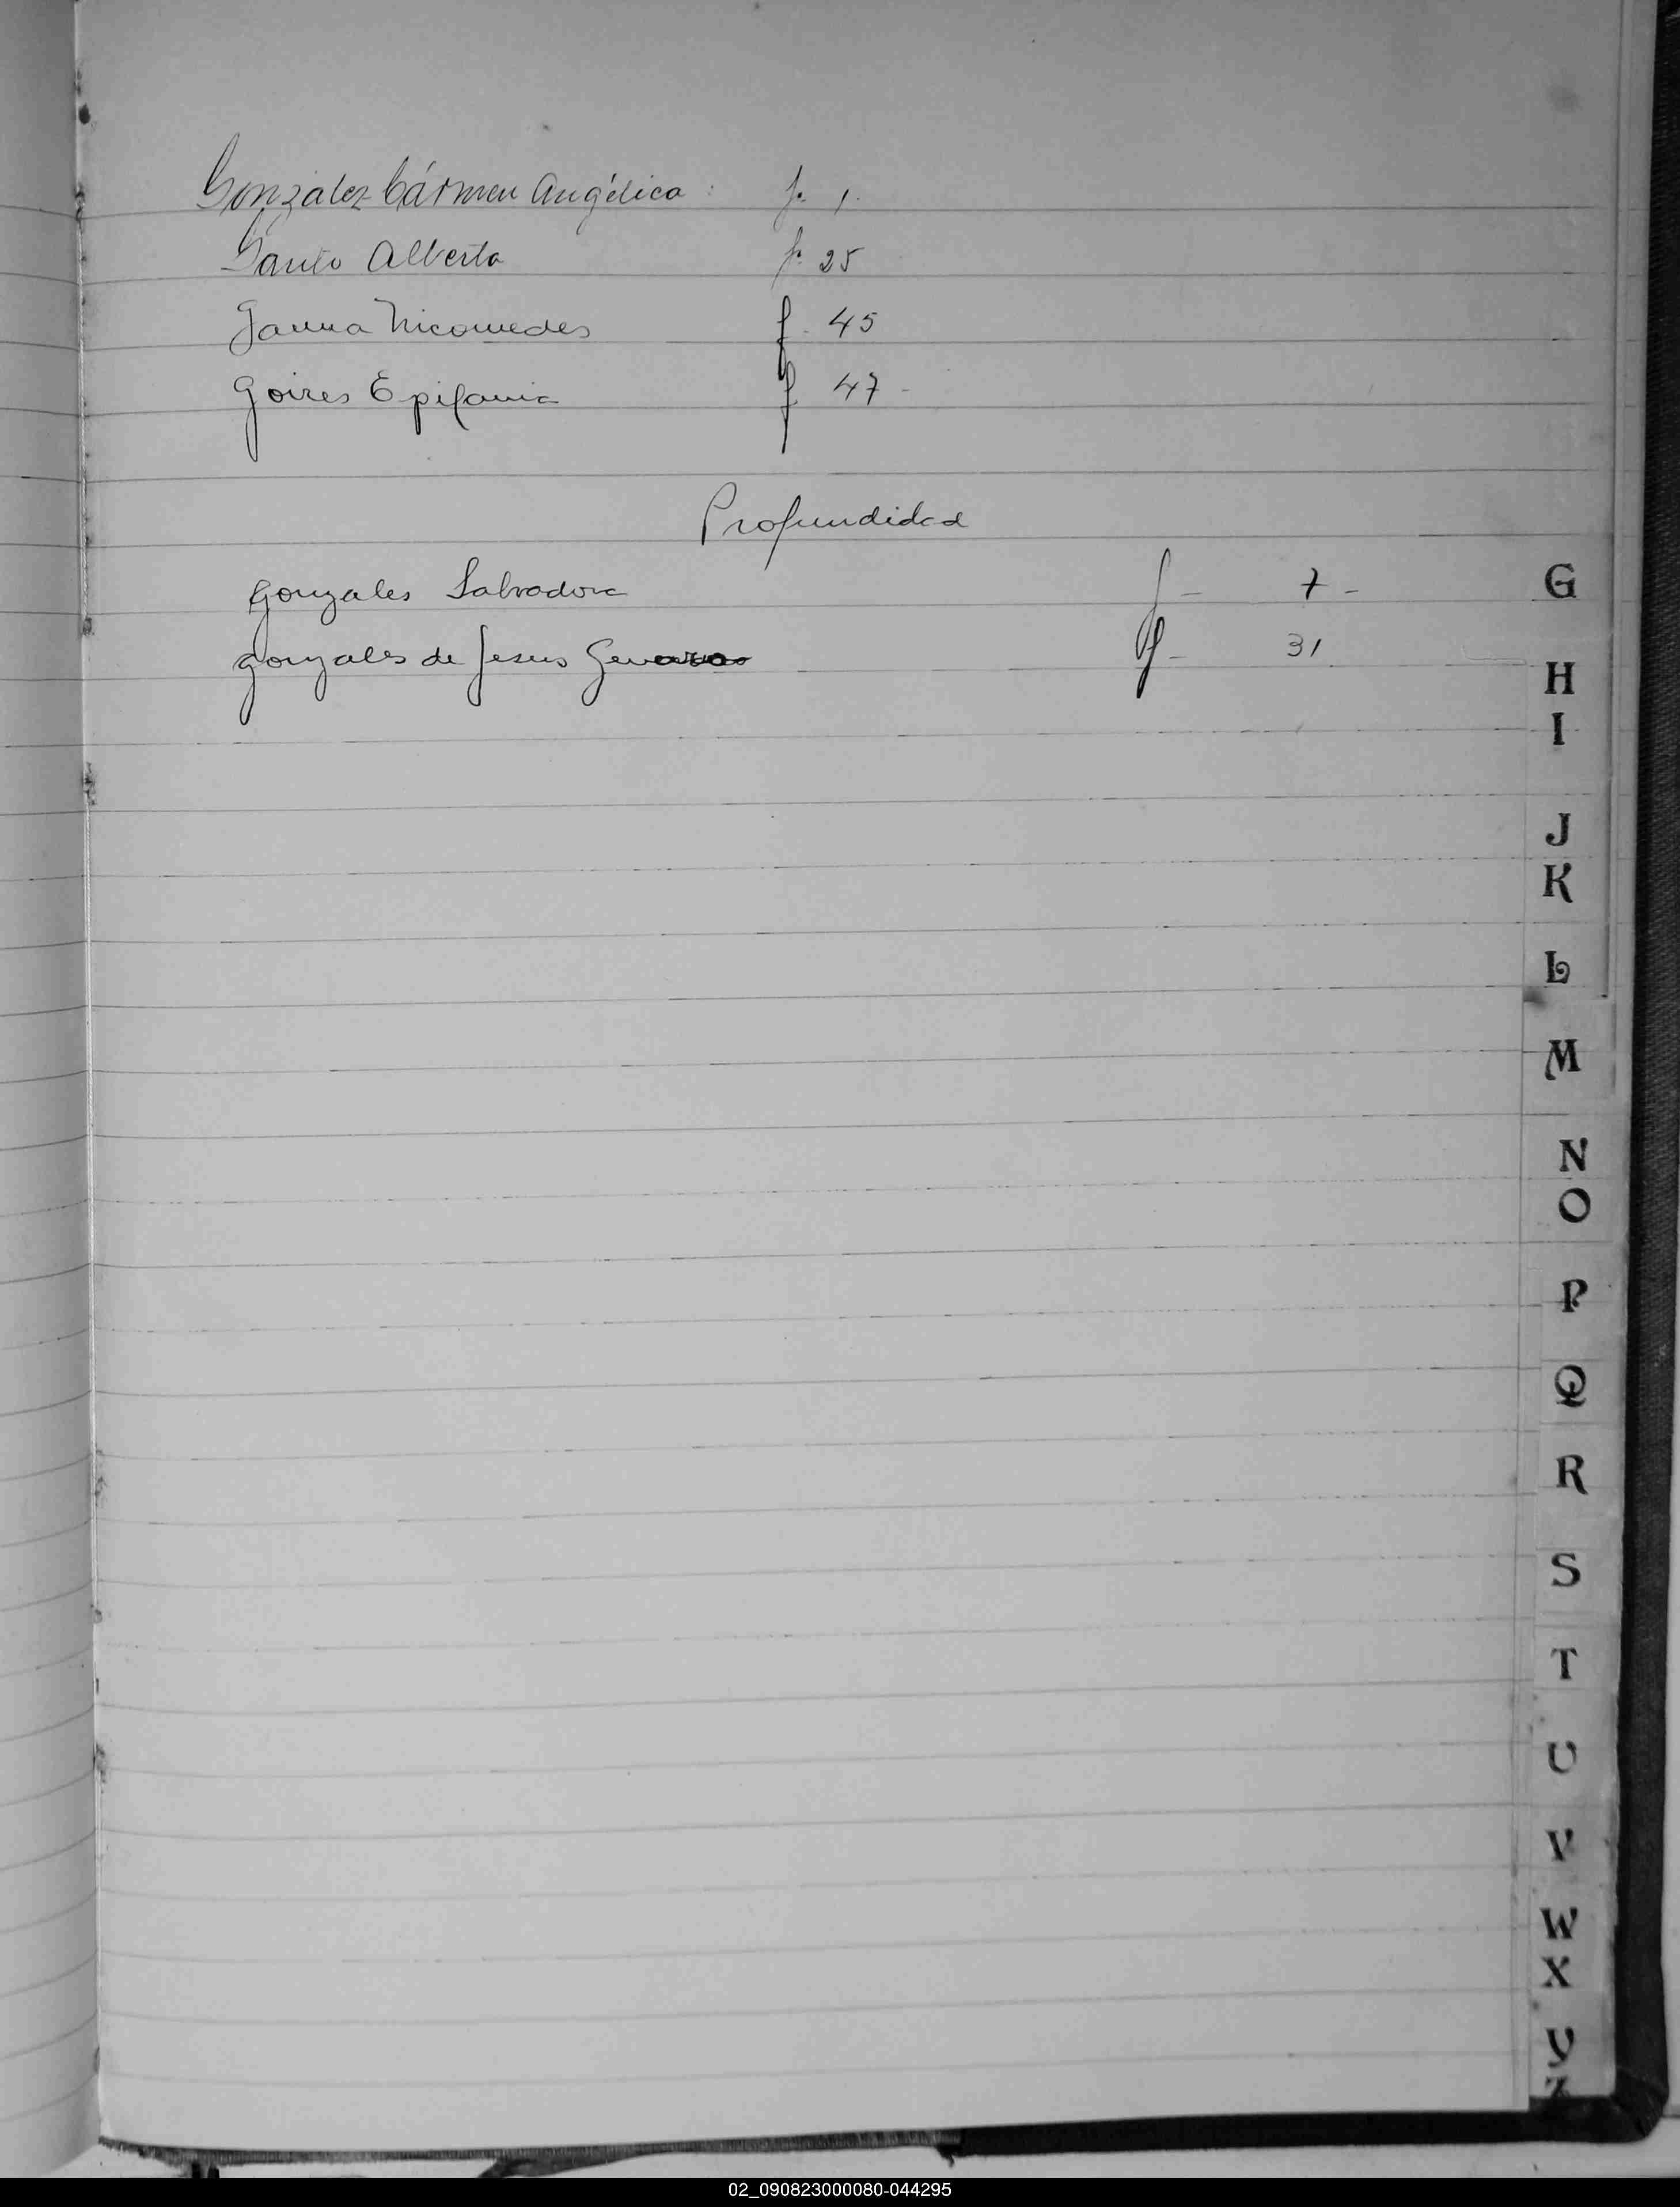 González Cármen Angélica : f. 1.
Alberto f. 25
Nicomedes f. 45
Goires Epifania f 47 -
Profundidad
Gonzales Salvadora f - 7 -
Gonzales de Jesus Genaro f - 31
G
H
I
J
K
L
M
N
O
P
Q
R
S
T
U
V
W
X
Y
Z
02_090823000080-044295